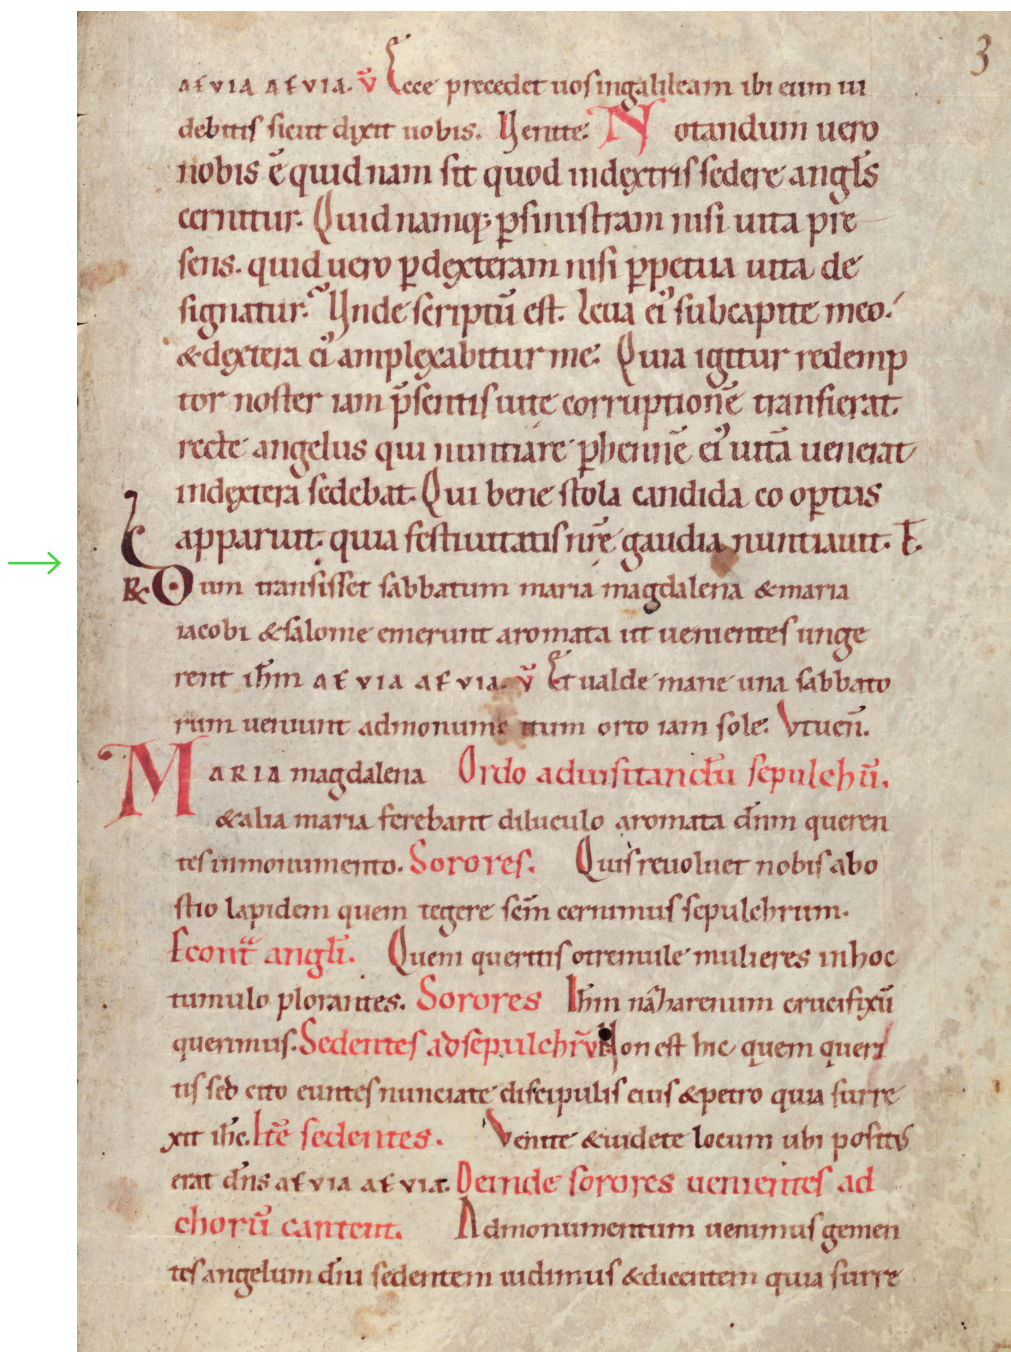 3
aevia aevia. v̄ Ecce precedet uos in galileam ibi eum ui
debitis sicut dixit uobis. Uenite. Notandum uero
nobis ē quidnam sit quod in dextris sedere angl̄s
cernitur. Quid namq; p̱ sinistram nisi uita pre
sens. quid uero p̱ dexteram nisi p̱petua uita de
signatur. Unde scriptū est. Leua ei' sub capite meo.
& dextera ei' amplexabitur me. Quia igitur redemp
tor noster iam p̄sentis uite corruptionē transierat.
recte angelus qui nuntiare p̱hennē ei' uitā uenerat
in dextera sedebat. Qui bene stola candida coop̱tus
apparuit. quia festiuitatis nrē gaudia nuntiauit. T.
R Cum transisset sabbatum maria magdalena & maria
iacobi & salome emerunt aromata ut uenientes unge
rent ih̄m aevia aevia. v̄ Et ualde mane una sabbato
rum ueniunt ad monumentum orto iam sole. Vt ueñ.
Maria magdalena Ordo ad uisitandū sepulchū.
& alia maria ferebant diluculo aromata dn̄m queren
tes in monumento. Sorores. Quis reuoluet nobis abo
stio lapidem quem tegere sēm cernimus sepulchrum.
Econt̄ angli̅. Quem queritis o tremule mulieres in hoc
tumulo plorantes. Sorores Ih̄m nazarenum crucifixū
querimus. Sedentes ad sepulchrū Non est hic quem queri
tis sed cito euntes nunciate discipulis eius & petro quia surre
xit ih̄c. Itē sedentes. Venite & uidete locum ubi positus
erat dn̄s aevia aevia. Deinde sorores uenientes ad
chorū cantent. Ad monumentum uenimus gemen
tes angelum dn̄i sedentem uidimus & dicentem quia surre